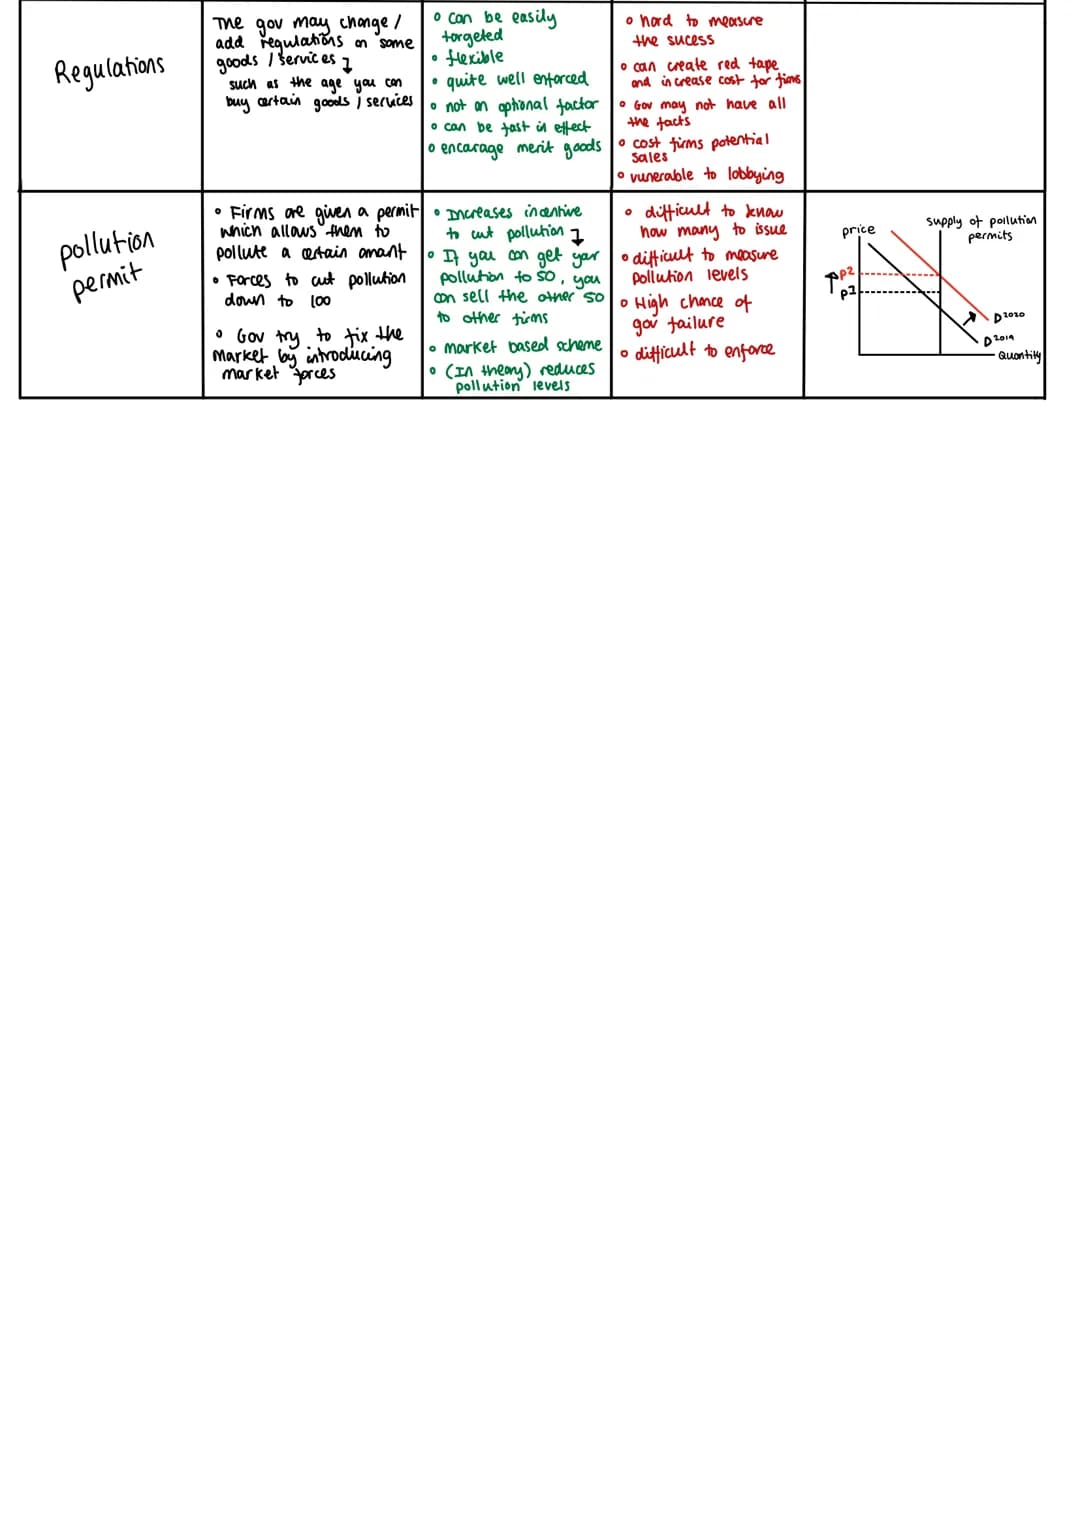 Regulations
The gov may change /
add regulations on some
goods / services ↴
such as the age you can
buy certain goods / services
• can be easily
targeted
• flexible
• quite well enforced
• not an optional factor
• can be fast in effect
• encarage merit goods
• hard to measure
the sucess
• can create red tape
and increase cost for firms
• Gov may not have all
the facts
• cost firms potential
sales
• vunerable to lobbying
pollution
permit
• Firms are given a permit
which allows then to
pollute a certain amant
• Forces to cut pollution
down to 100
• Gov try to fix the
market by introducing
market forces
• Increases incentive
to cut pollution ↴
• If you can get your
pollution to 50, you
can sell the other 50
to other firms
• market based scheme
• (In theory) reduces
pollution levels
• difficult to know
how many to issue
• difficult to measure
pollution levels
• High chance of
gov failure
• difficult to enforce
price
supply of pollution
permits
p2
p1
D2020
D2019
Quantity